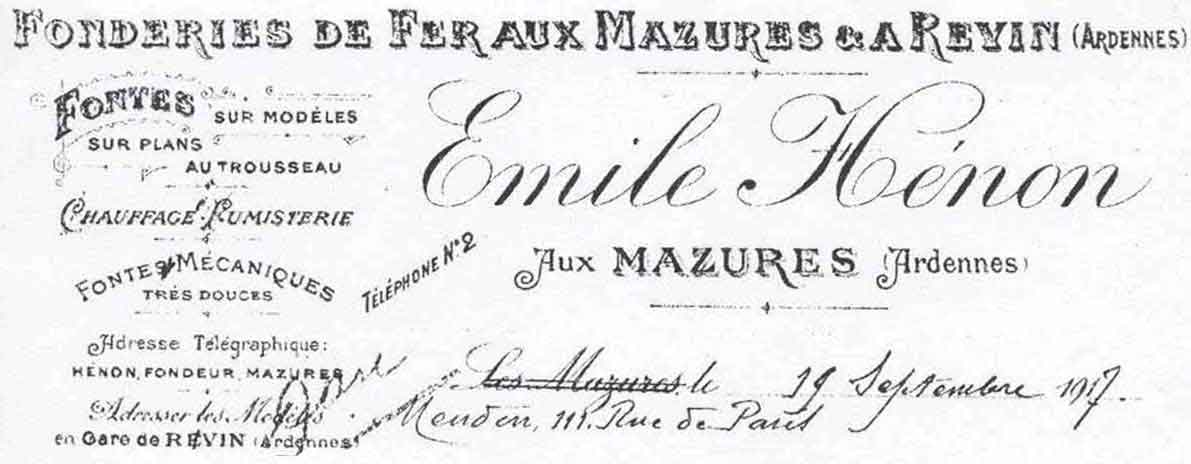 FONDERIES DE FER AUX MAZURES & A REVIN (ARDENNES)
FONTES
SUR MODÈLES
SUR PLANS
AU TROUSSEAU
CHAUFFAGE FUMISTERIE
FONTES MÉCANIQUES
TRÈS DOUCES
Adresse Télégraphique:
HÉNON, FONDEUR, MAZURES
Adresser les Modèles
en Gare de REVIN (Ardennes)
Emile Hénon
TÉLÉPHONE N° 2
Aux MAZURES (Ardennes)
Les Mazures, le 19 Septembre 1917
111, Rue de Paris